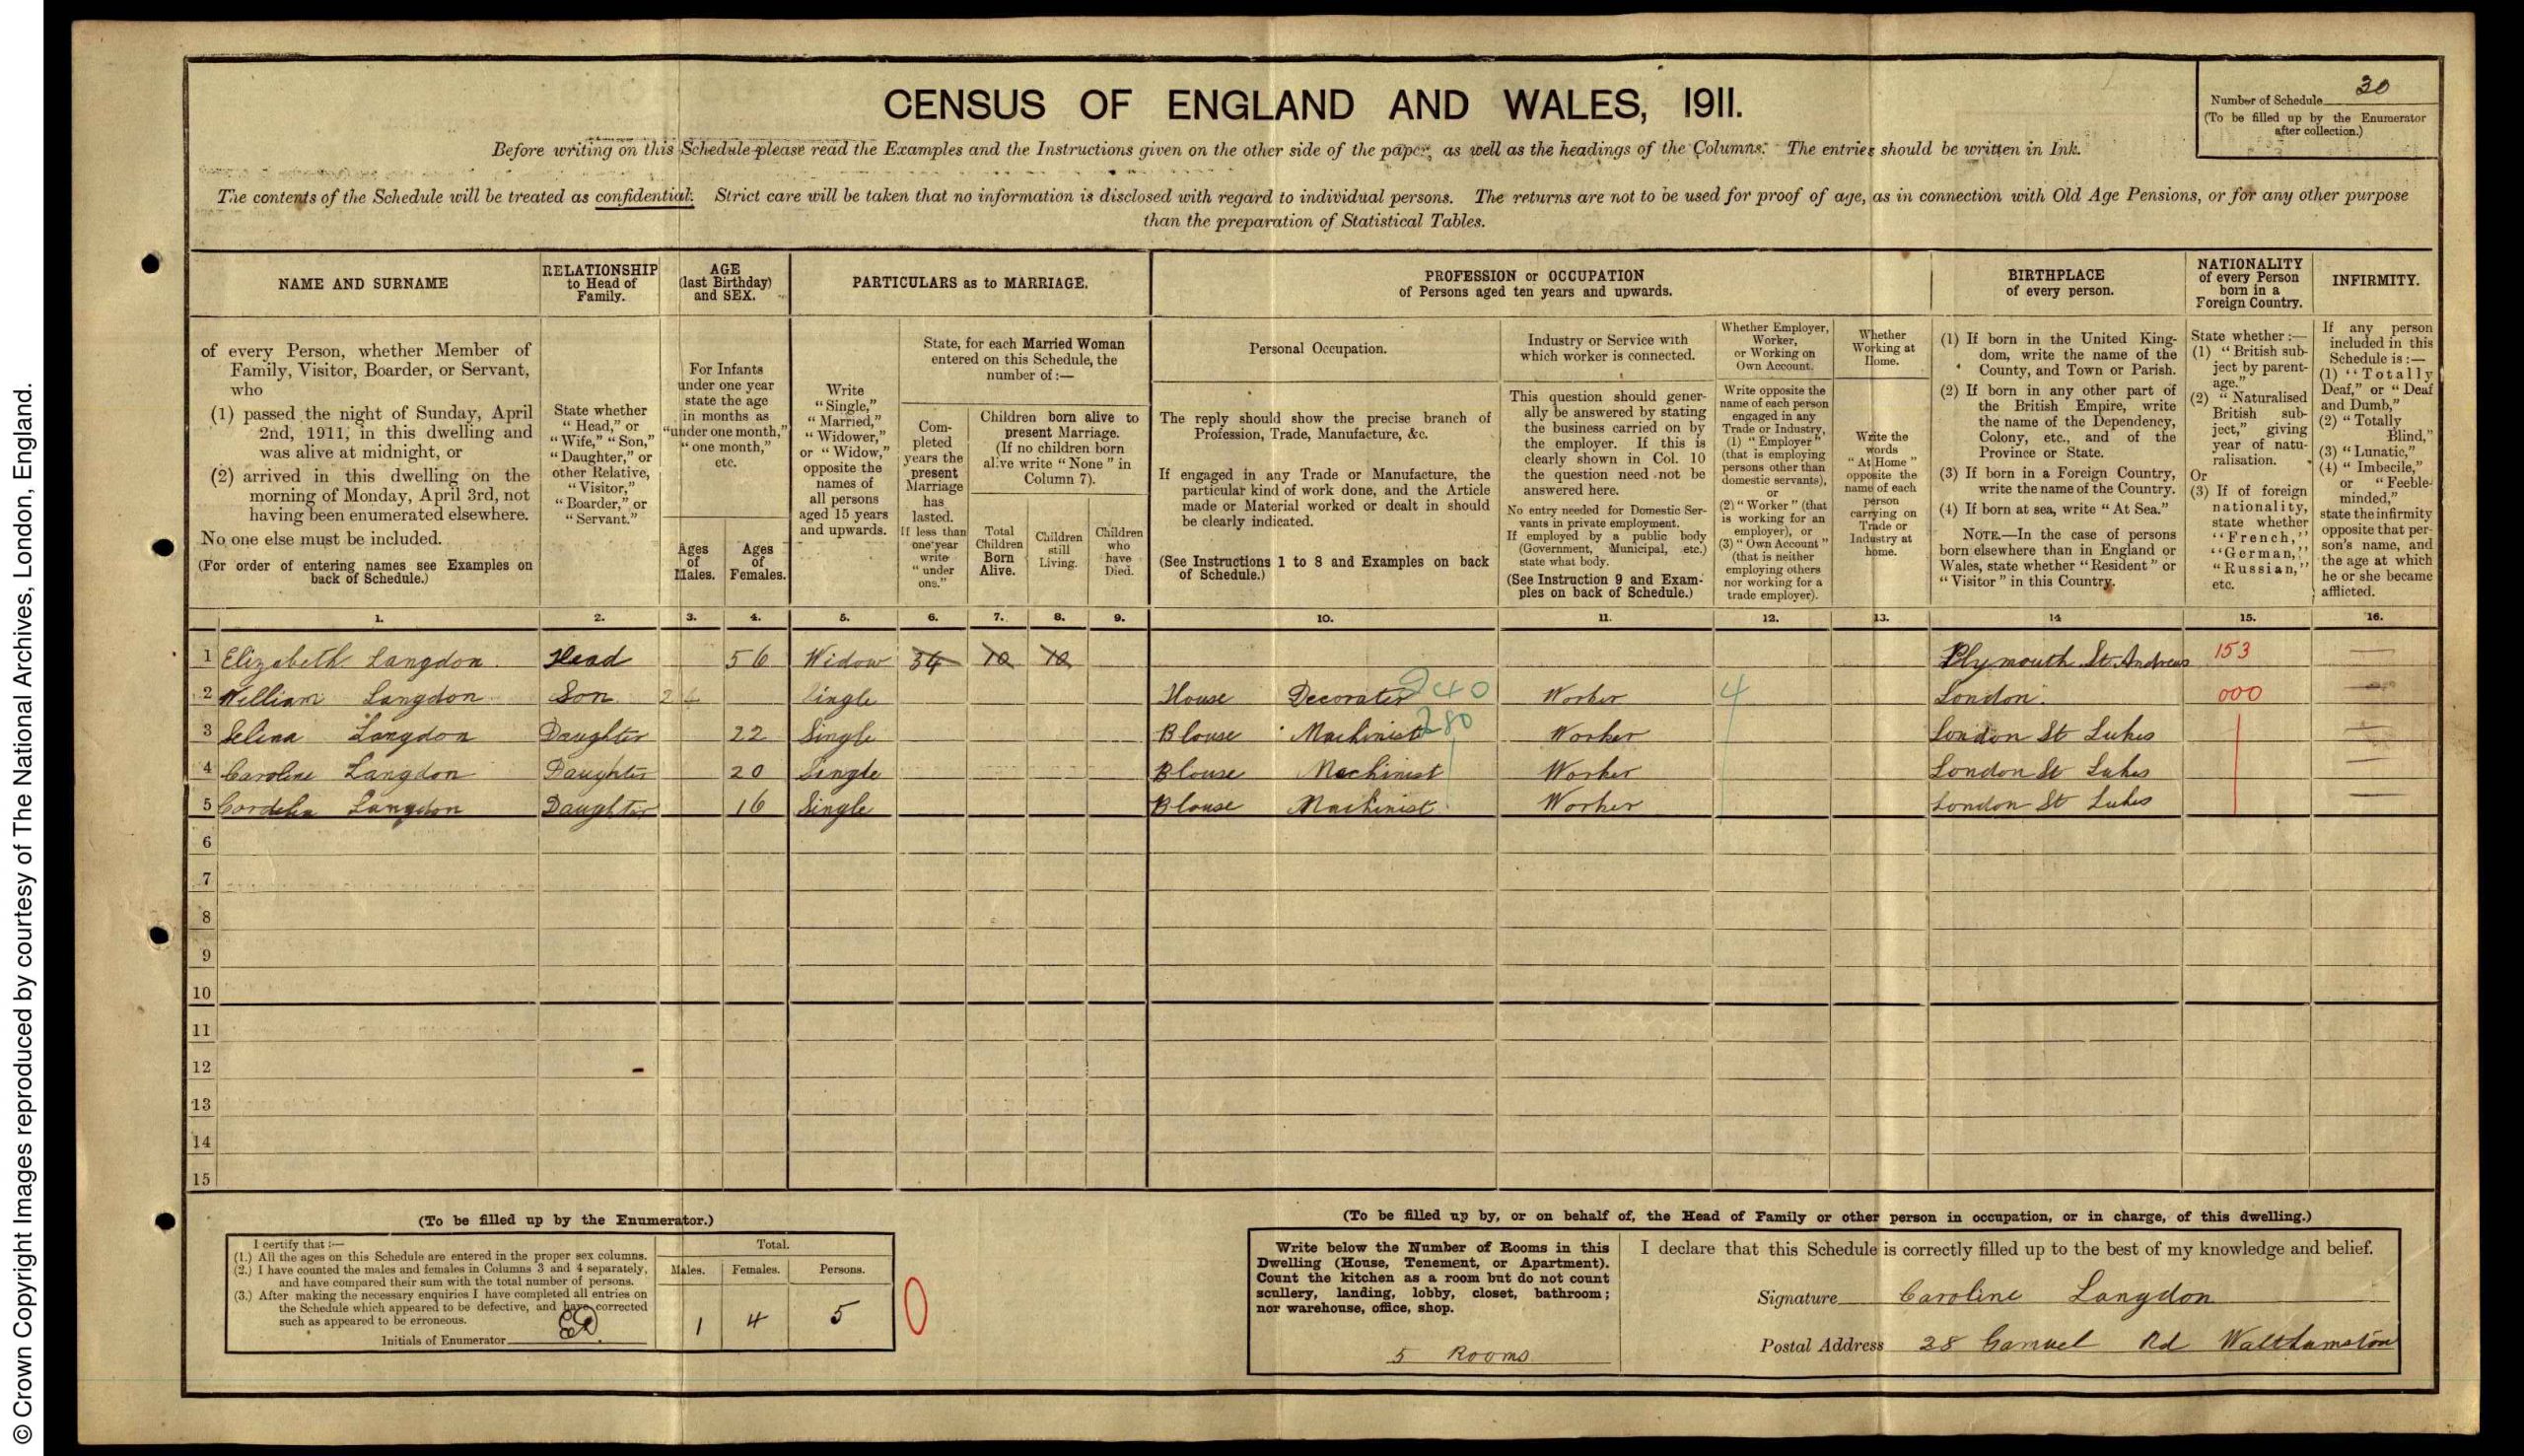 © Crown Copyright Images reproduced by courtesy of The National Archives, London, England.
CENSUS OF ENGLAND AND WALES, 1911.
Number of Schedule 30
(To be filled up by the Enumerator
after collection.)
Before writing on this Schedule please read the Examples and the Instructions given on the other side of the paper, as well as the headings of the Columns. The entries should be written in Ink.
The contents of the Schedule will be treated as confidential. Strict care will be taken that no information is disclosed with regard to individual persons. The returns are not to be used for proof of age, as in connection with Old Age Pensions, or for any other purpose
than the preparation of Statistical Tables.
NAME AND SURNAME
of every Person, whether Member of
Family, Visitor, Boarder, or Servant,
who
(1) passed the night of Sunday, April
2nd, 1911, in this dwelling and
was alive at midnight, or
(2) arrived in this dwelling on the
morning of Monday, April 3rd, not
having been enumerated elsewhere.
No one else must be included.
(For order of entering names see Examples on
back of Schedule.)
RELATIONSHIP
to Head of
Family.
State whether
"Head," or
"Wife," "Son,"
"Daughter," or
other Relative,
"Visitor,"
"Boarder," or
"Servant."
AGE
(last Birthday)
and SEX.
For Infants
under one year
state the age
in months as
"under one month,"
"one month,"
etc.
Ages
of
Males.
Ages
of
Females.
PARTICULARS as to MARRIAGE.
Write
"Single,"
"Married,"
"Widower,"
or "Widow,"
opposite the
names of
all persons
aged 15 years
and upwards.
State, for each Married Woman
entered on this Schedule, the
number of :—
Com-
pleted
years the
present
Marriage
has
lasted.
If less than
one year
write
"under
one."
Children born alive to
present Marriage.
(If no children born
alive write "None" in
Column 7).
Total
Children
Born
Alive.
Children
still
Living.
Children
who
have
Died.
PROFESSION or OCCUPATION
of Persons aged ten years and upwards.
Personal Occupation.
The reply should show the precise branch of
Profession, Trade, Manufacture, &c.
If engaged in any Trade or Manufacture, the
particular kind of work done, and the Article
made or Material worked or dealt in should
be clearly indicated.
(See Instructions 1 to 8 and Examples on back
of Schedule.)
Industry or Service with
which worker is connected.
This question should gener-
ally be answered by stating
the business carried on by
the employer. If this is
clearly shown in Col. 10
the question need not be
answered here.
No entry needed for Domestic Ser-
vants in private employment.
If employed by a public body
(Government, Municipal, etc.)
state what body.
(See Instruction 9 and Exam-
ples on back of Schedule.)
Whether Employer,
Worker,
or Working on
Own Account.
Write opposite the
name of each person
engaged in any
Trade or Industry,
(1) "Employer"
(that is employing
persons other than
domestic servants),
or
(2) "Worker" (that
is working for an
employer), or
(3) "Own Account"
(that is neither
employing others
nor working for a
trade employer).
Whether
Working at
Home.
Write the
words
"At Home"
opposite the
name of each
person
carrying on
Trade or
Industry at
home.
BIRTHPLACE
of every person.
(1) If born in the United King-
dom, write the name of the
County, and Town or Parish.
(2) If born in any other part of
the British Empire, write
the name of the Dependency,
Colony, etc., and of the
Province or State.
(3) If born in a Foreign Country,
write the name of the Country.
(4) If born at sea, write "At Sea."
NOTE.—In the case of persons
born elsewhere than in England or
Wales, state whether "Resident" or
"Visitor" in this Country.
NATIONALITY
of every Person
born in a
Foreign Country.
State whether :—
(1) "British sub-
ject by parent-
age."
(2) "Naturalised
British sub-
ject," giving
year of natu-
ralisation.
Or
(3) If of foreign
nationality,
state whether
"French,"
"German,"
"Russian,"
etc.
INFIRMITY.
If any person
included in this
Schedule is :—
(1) "Totally
Deaf," or "Deaf
and Dumb,"
(2) "Totally
Blind,"
(3) "Lunatic,"
(4) "Imbecile,"
or "Feeble-
minded,"
state the infirmity
opposite that per-
son's name, and
the age at which
he or she became
afflicted.
1. 2. 3. 4. 5. 6. 7. 8. 9. 10. 11. 12. 13. 14 15. 16.
1 Elizabeth Langdon Head 56 Widow 34 10 10 Plymouth St. Andrews 153
2 William Langdon Son Single House Decorater 240 Worker 4 London 000
3 Selina Langdon Daughter 22 Single Blouse Machinist 280 Worker London St Lukes
4 Caroline Langdon Daughter 20 Single Blouse Machinist Worker London St Lukes
5 Cordelia Langdon Daughter 16 Single Blouse Machinist Worker London St Lukes
6
7
8
9
10
11
12
13
14
15
(To be filled up by the Enumerator.)
I certify that :—
(1.) All the ages on this Schedule are entered in the proper sex columns.
(2.) I have counted the males and females in Columns 3 and 4 separately,
and have compared their sum with the total number of persons.
(3.) After making the necessary enquiries I have completed all entries on
the Schedule which appeared to be defective, and have corrected
such as appeared to be erroneous.
Initials of Enumerator
Total.
Males. Females. Persons.
1 4 5
0
(To be filled up by, or on behalf of, the Head of Family or other person in occupation, or in charge, of this dwelling.)
Write below the Number of Rooms in this
Dwelling (House, Tenement, or Apartment).
Count the kitchen as a room but do not count
scullery, landing, lobby, closet, bathroom;
nor warehouse, office, shop.
5 Rooms
I declare that this Schedule is correctly filled up to the best of my knowledge and belief.
Signature Caroline Langdon
Postal Address 28 Gamuel Rd Walthamstow